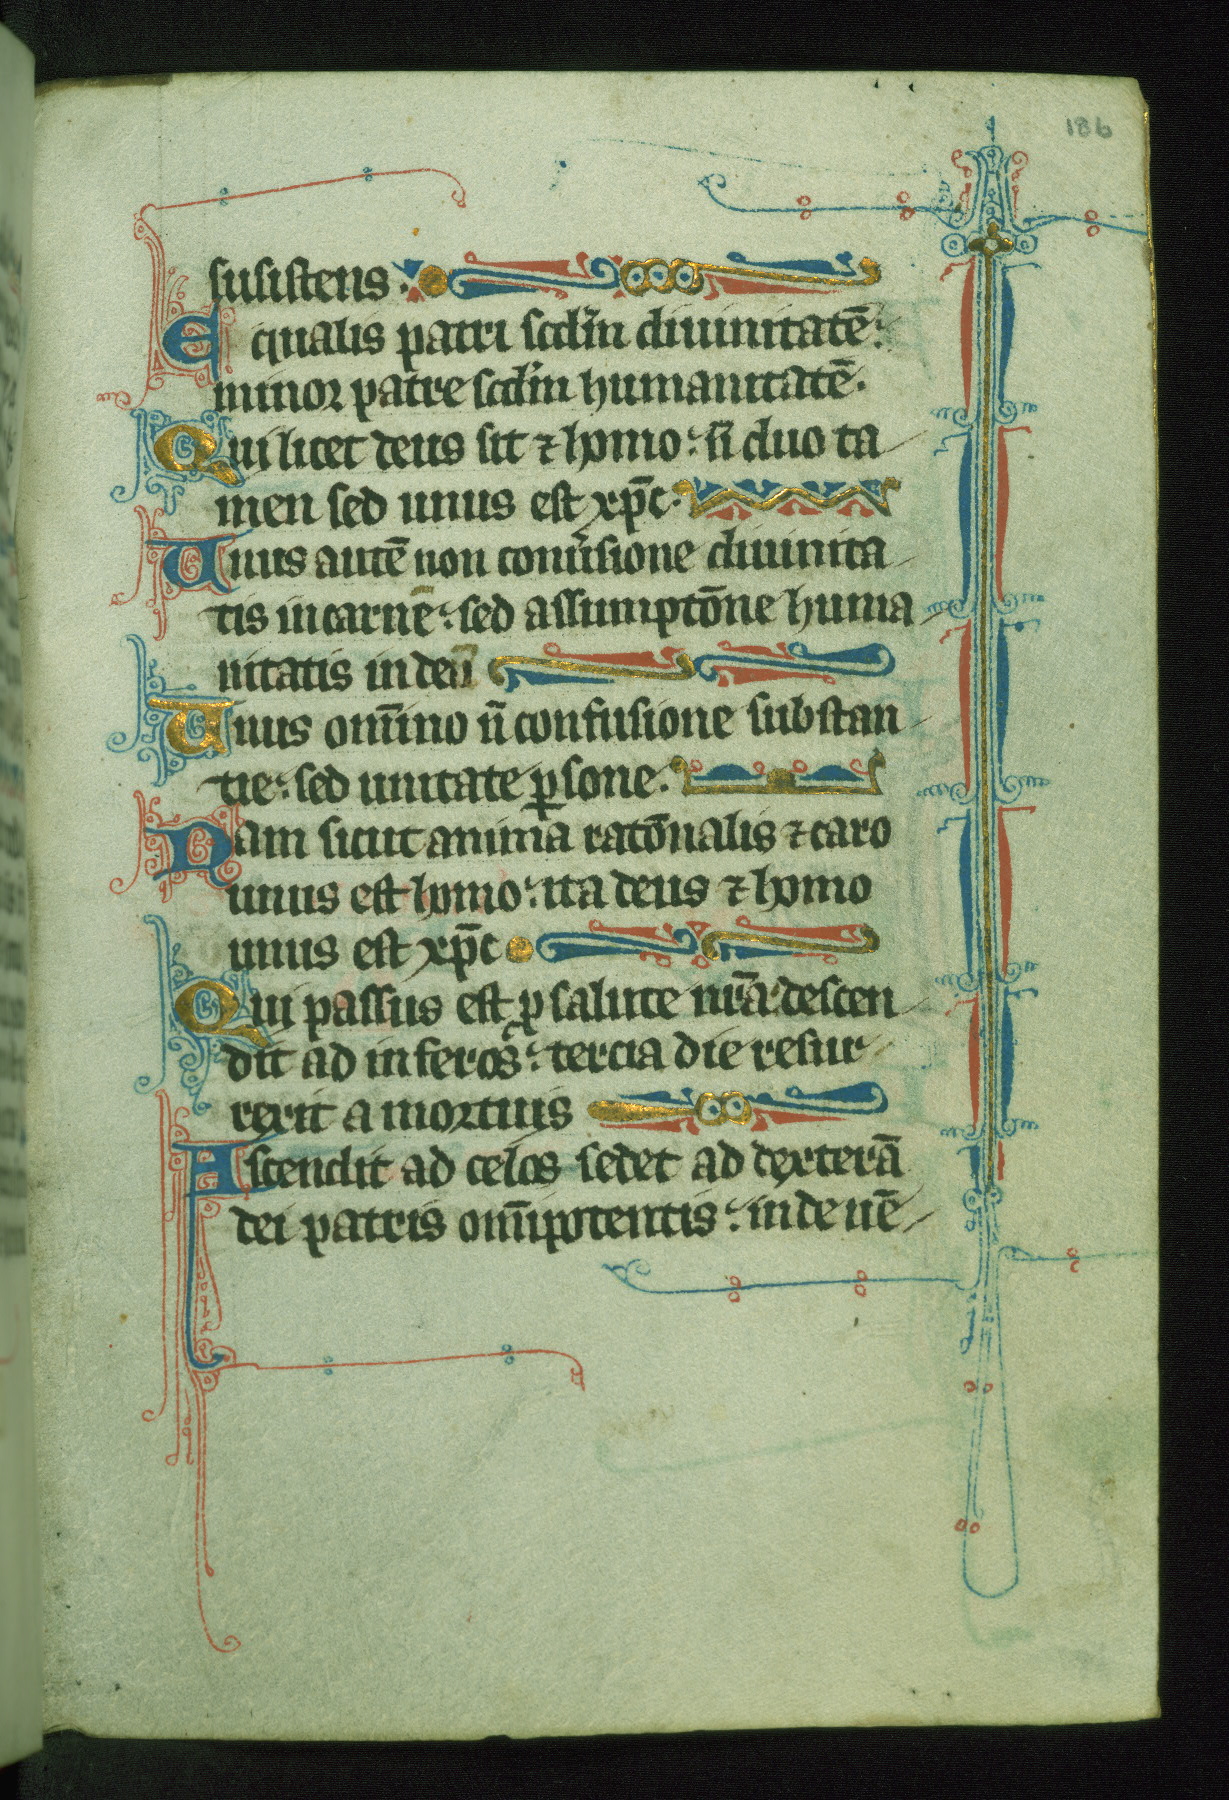 186
susistens.
Equalis patri scdm̄ diuinitatē:
minor patre scdm̄ humanitatē.
Qui licet deus sit ⁊ homo: n̄ duo ta
men sed unus est xp̄c.
Unus autē non conu̾sione diuinita
tis in carnē: sed assumptōne huma
nitatis in deū
Unus om̄ino n̄ confusione substan
tie: sed unitate ꝑsone.
Nam sicut anima ratōnalis ⁊ caro
unus est homo: ita deus ⁊ homo
unus est xp̄c
Qui passus est ꝓ salute nr̄a: descen
dit ad inferos: tercia die resur
rexit a mortuis
Ascendit ad celos sedet ad dexterā
dei patris om̄ipotentis: inde uē